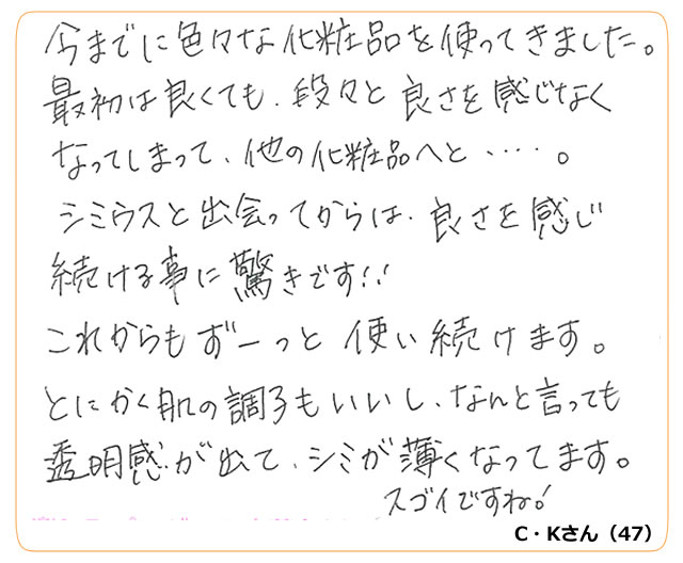 今までに色々な化粧品を使ってきました。
最初は良くても、段々と良さを感じなく
なってしまって、他の化粧品へと・・・・。
シミウスと出会ってからは、良さを感じ
続ける事に驚きです!!
これからもずーっと使い続けます。
とにかく肌の調子もいいし、なんと言っても
透明感が出て、シミが薄くなってます。
スゴイですね!
C・Kさん（47）